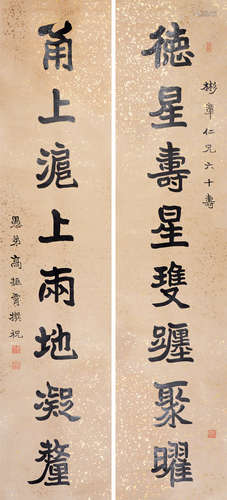 彬章仁兄六十壽
德星壽星雙躔聚曜
甬上滬上兩地凝釐
愚弟高振霄撰祝